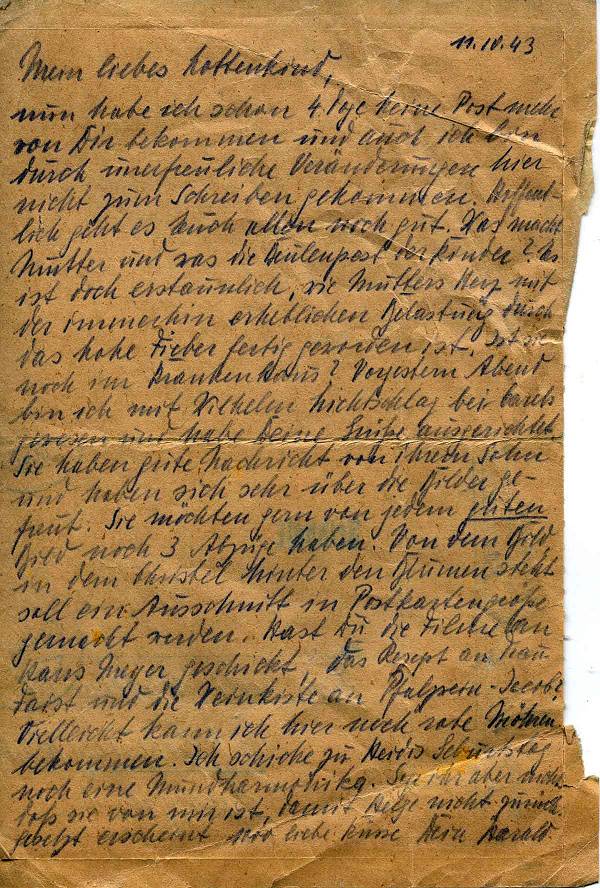 11.IV.43
Mein liebes Lottenkind,
nun habe ich schon 4 Tage keine Post mehr
von Dir bekommen und auch ich bin
durch unerfreuliche Veränderungen hier
nicht zum Schreiben gekommen. Hoffent-
lich geht es Euch allen noch gut. Was macht
Mutter und was die Beulenpest der Kinder? Es
ist doch erstaunlich, wie Mutters Herz mit
der immerhin erheblichen Belastung durch
das hohe Fieber fertig geworden ist. Ist sie
noch im Krankenhaus? Vorgestern Abend
bin ich mit Wilhelm bei
gewesen und habe Deine Grüße ausgerichtet
Sie haben gute Nachricht von ihrem Sohn
und haben sich sehr über die Bilder ge-
freut. Sie möchten gern von jedem guten
Bild noch 3 Abzüge haben. Von dem Bild,
in dem Christel hinter den Blumen steht
soll ein Ausschnitt in Postkartengröße
gemacht werden. Hast Du die Filme an
Hans Meyer geschickt, das Rezept an Frau
Faist und die Weinkiste an
Vielleicht kann ich hier noch rote Möhren
bekommen. Ich schicke zu Heidis Geburtstag
noch eine Mundharmonika. Sag ihr aber nicht,
daß sie von mir ist, damit Helge nicht zurück-
gesetzt erscheint 1000 liebe Küsse Dein Harald.